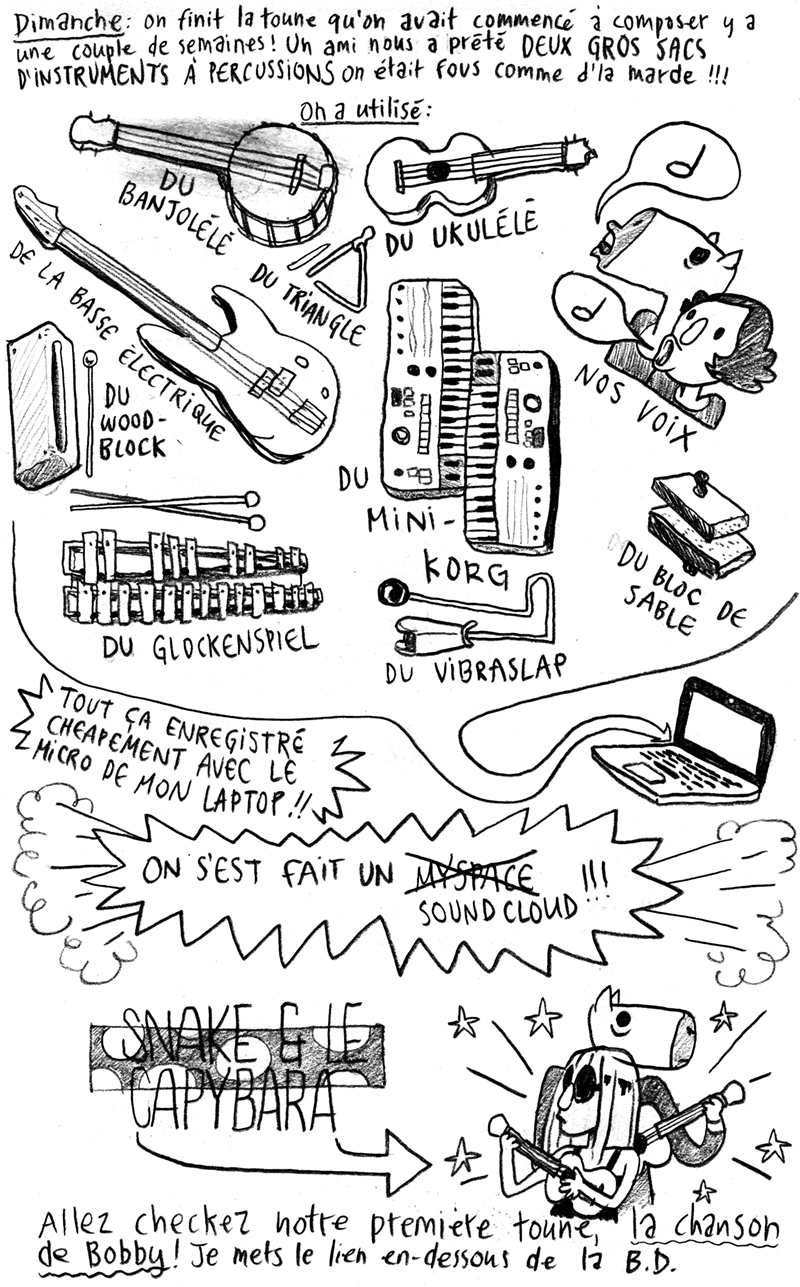 Dimanche: on finit la toune qu'on avait commencé à composer y a
une couple de semaines! Un ami nous a prêté DEUX GROS SACS
D'INSTRUMENTS À PERCUSSIONS on était fous comme d'la marde !!!
On a utilisé:
DU
BANJOLÉLÉ
DU UKULÉLÉ
DE LA BASSE ÉLECTRIQUE
DU TRIANGLE
NOS VOIX
DU
WOOD-
BLOCK
DU
MINI-
KORG
DU BLOC DE
SABLE
DU GLOCKENSPIEL
DU VIBRASLAP
TOUT ÇA ENREGISTRÉ
CHEAPEMENT AVEC LE
MICRO DE MON LAPTOP!!
ON S'EST FAIT UN MYSPACE !!!
SOUNDCLOUD
SNAKE & LE
CAPYBARA
Allez checkez notre première toune, la chanson
de Bobby! Je mets le lien en-dessous de la B.D.